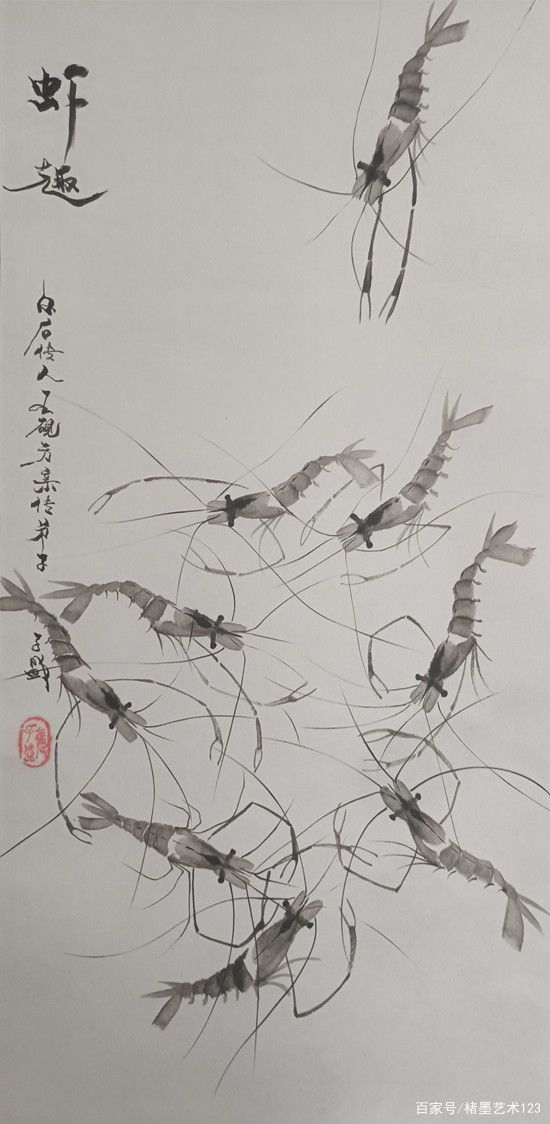 虾趣
白石传人王砚方亲传弟子
百家号/楮墨艺术123